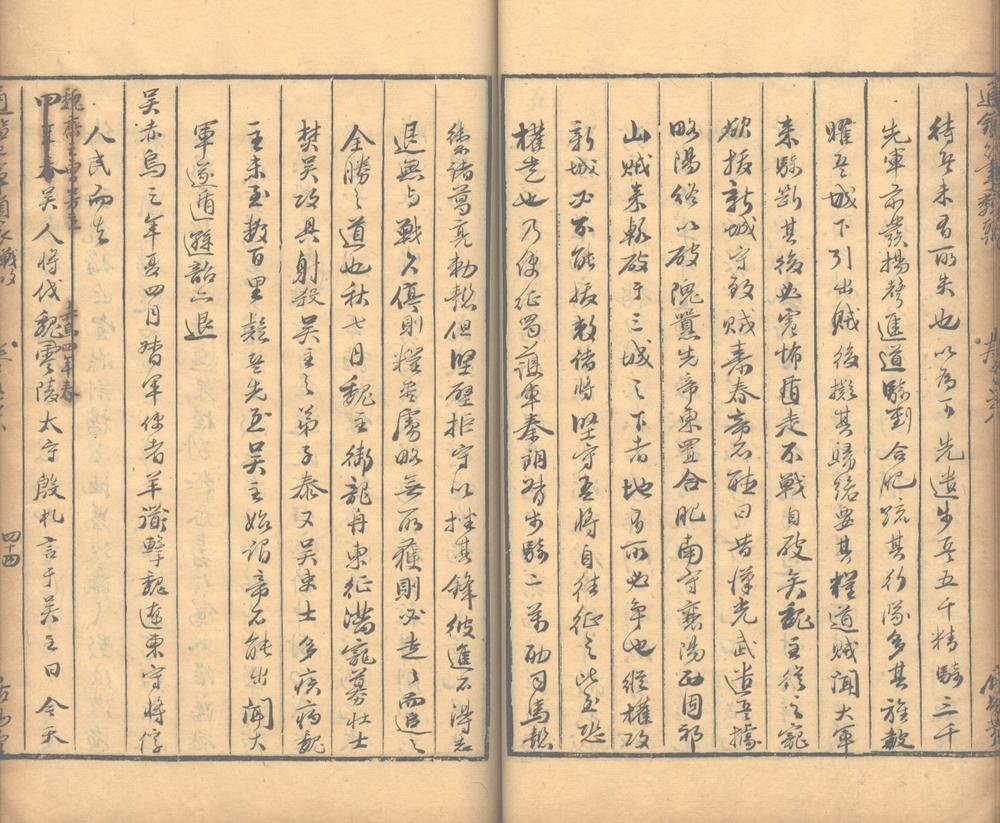 待兵未有所失也以為可先遣步兵五千精騎三千
先軍前發揚聲進道騎到合肥疏其行隊多其旌鼓
曜兵城下引出賊後擬其歸路要其糧道賊聞大軍
來騎斷其後必震怖遁走不戰自破矣魏主從之寵
欲拔新城守致賊壽春帝不聽曰昔漢光武遣兵據
略陽終以破隗囂先帝東置合肥南守襄陽西固祁
山賊來輒破于三城之下者地有所必爭也縱權攻
新城必不能拔敕諸將堅守吾將自往征之比至恐
權走也乃使征蜀護軍秦朗督步騎二萬助司馬懿
禦諸葛亮勅懿但堅壁拒守以挫其鋒彼進不得志
退無與戰久停則糧盡虜略無所獲則必走走而追之
全勝之道也秋七月魏主御龍舟東征滿寵募壯士
焚吳攻具射殺吳主之弟子泰又吳吏士多疾病魏
主未至數百里疑兵先至吳主始謂帝不能出聞大
軍遂遁遜韶亦退
吳赤烏二年夏四月督軍使者羊衜擊魏遼東守將俘
人民而去
魏齊王曹芳立 赤烏四年春
四年春吳人將伐魏零陵太守殷札言于吳主曰今天
四十四